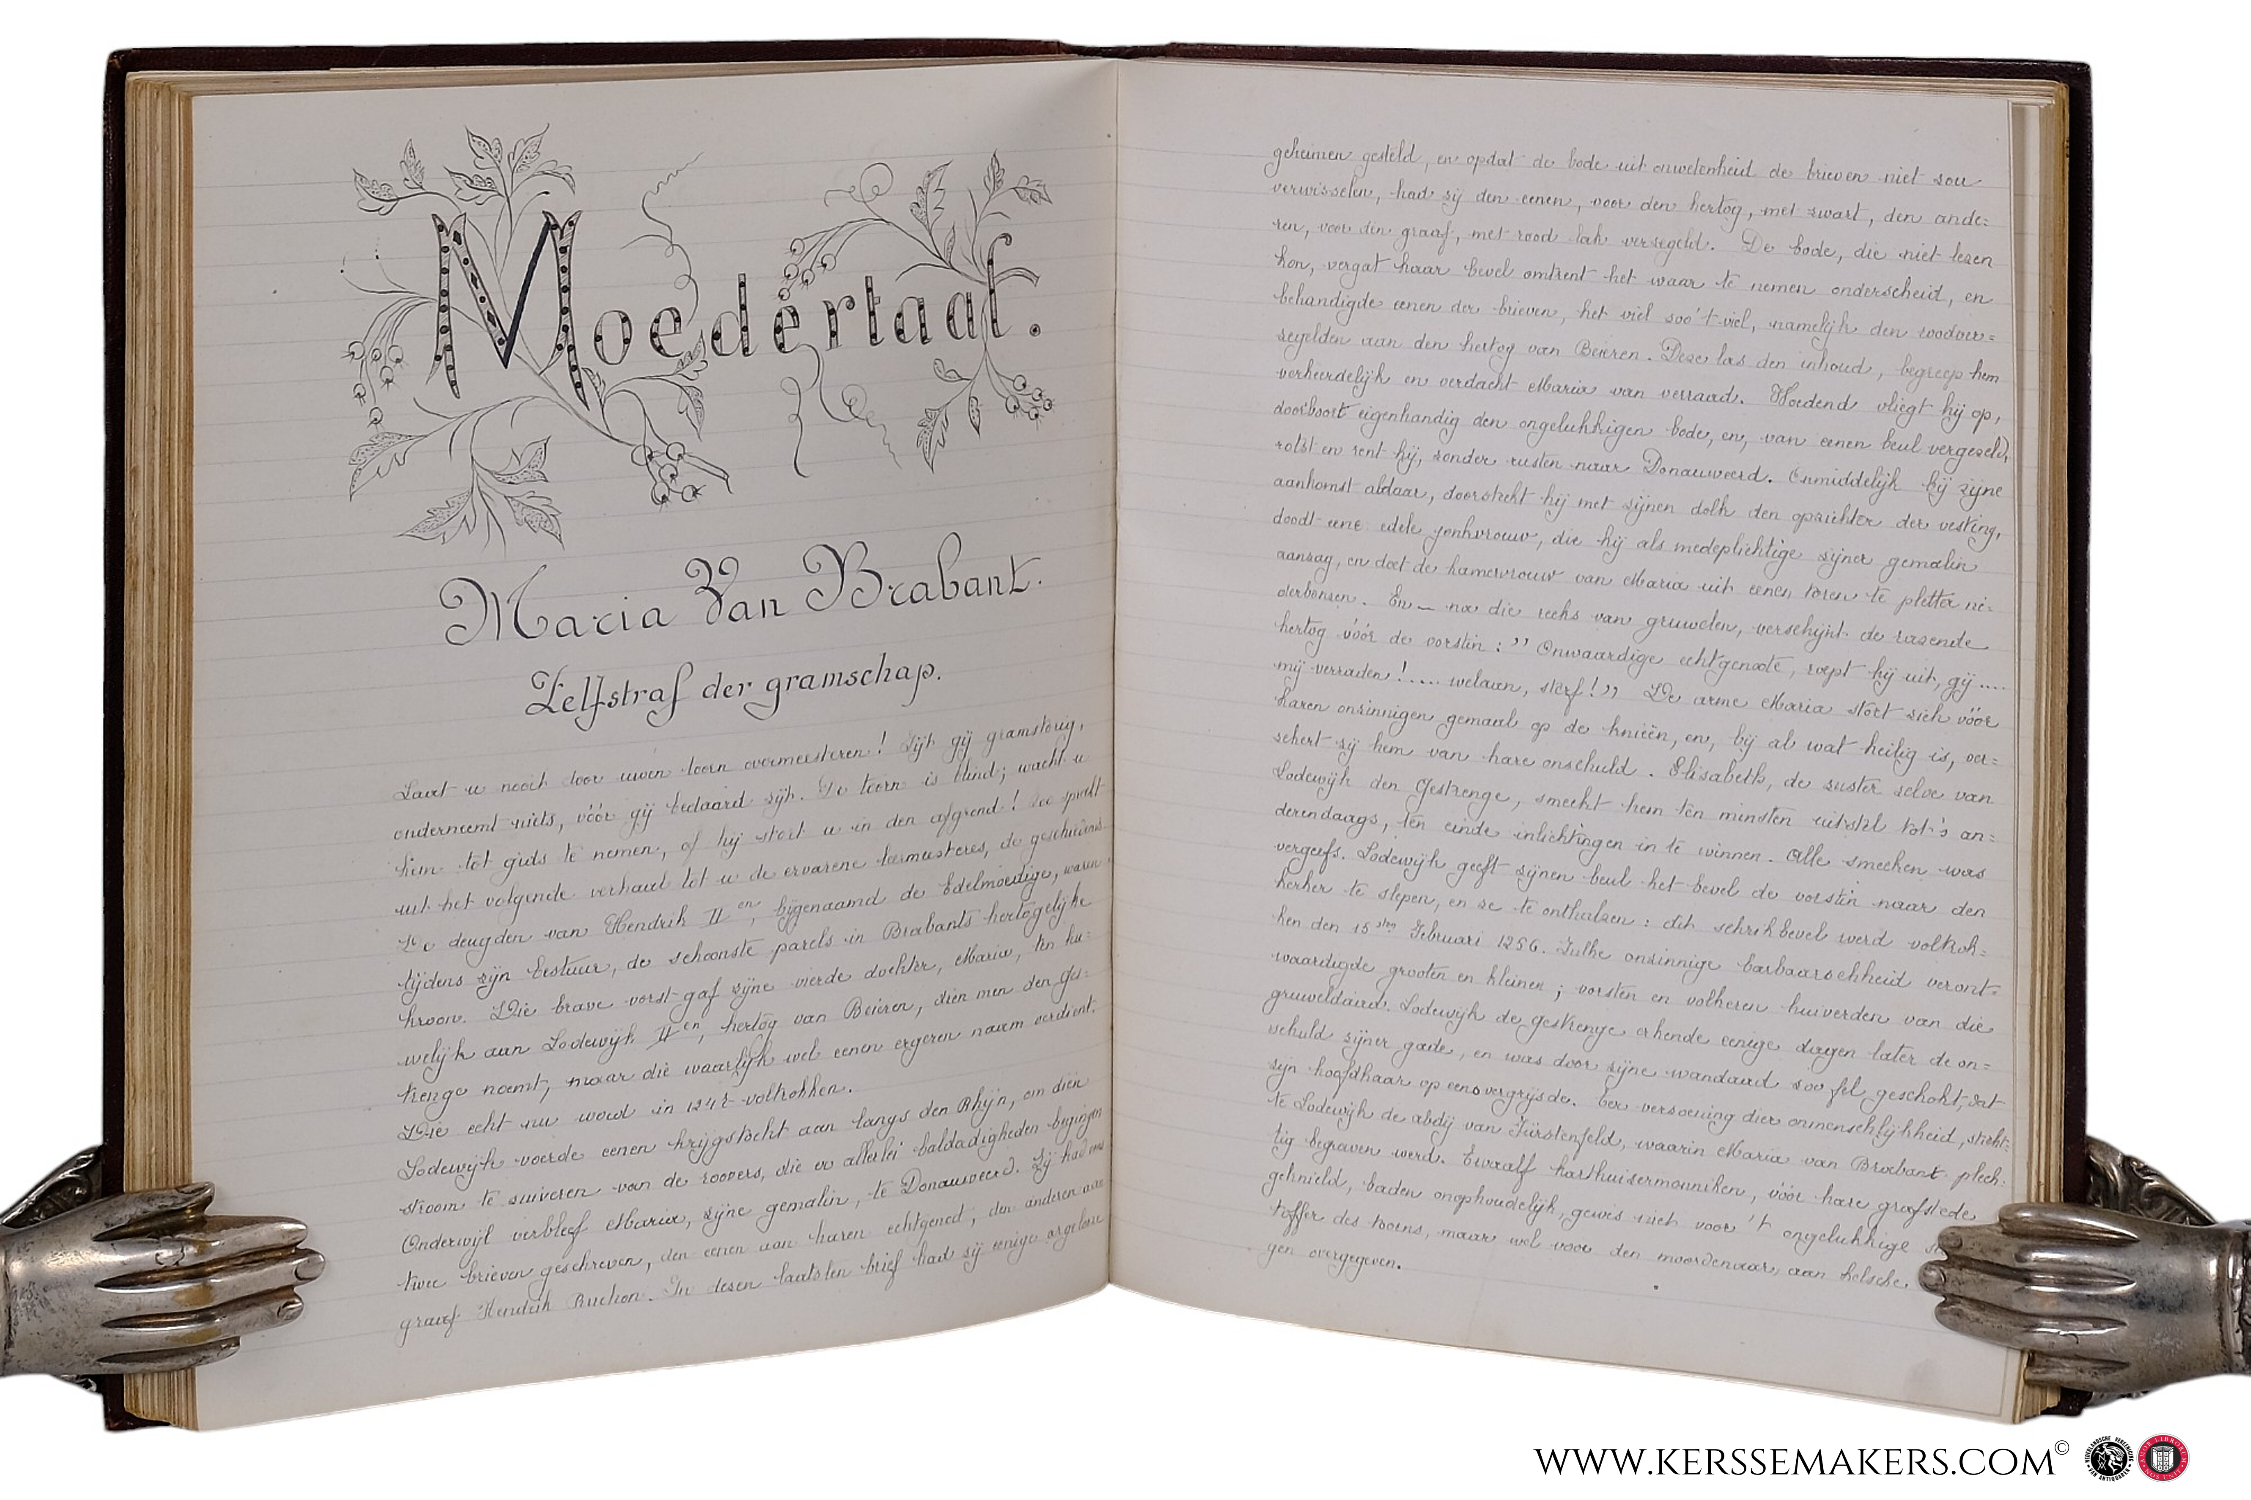 Moedertaal.
Maria Van Brabant.
Zelfstraf der gramschap.
Laat u nooit door uwen toorn overmeesteren! Zijt gij gramstorig,
onderneemt niets, vóór gij bedaard zijt. De toorn is blind; wacht u
hem tot gids te nemen, of hij stort u in den afgrond! Zoo spreekt
uit het volgende verhaal tot u de ervarene leermeesteres, de geschiedenis.
De deugden van Hendrik II en, bijgenaamd de Edelmoedige, waren,
tijdens zijn bestuur, de schoonste parels in Brabants hertogelijke
kroon. Die brave vorst gaf zijne vierde dochter, Maria, ten hu-
welijk aan Lodewijk II en, hertog van Beieren, dien men den Ges-
trenge noemt, maar die waarlijk wel eenen ergeren naam verdient.
Die echt nu werd in 1247 voltrokken.
Lodewijk voerde eenen krijgstocht aan langs den Rhijn, om dien
stroom te zuiveren van de roovers, die er allerlei baldadigheden begingen
Onderwijl verbleef Maria, zijne gemalin, te Donauweerd. Zij had
twee brieven geschreven, den eenen aan haren echtgenoot, den anderen aan
graaf Hendrik Ruchon. In dezen laatsten brief had zij eenige argelooze
geheimen gesteld, en opdat de bode uit onwetenheid de brieven niet zou
verwisselen, had zij den eenen, voor den hertog, met zwart, den ande=
ren, voor den graaf, met rood lak verzegeld. De bode, die niet lezen
kon, vergat haar bevel omtrent het waar te nemen onderscheid, en
behandigde eenen der brieven, het viel zoo't viel, namelijk den roodver=
zegelden aan den hertog van Beieren. Deze las den inhoud, begreep hem
verkeerdelijk en verdacht Maria van verraad. Woedend vliegt hij op,
doorboort eigenhandig den ongelukkigen bode, en, van eenen beul vergezeld,
rotst en rent hij, zonder rusten naar Donauweerd. Onmiddelijk bij zijne
aankomst aldaar, doorsteekt hij met zijnen dolk den opzichter der vesting,
doodt eene edele jonkvrouw, die hij als medeplichtige zijner gemalin
aanzag, en doet de kamervrouw van Maria uit eenen toren te pletter ne-
derbonzen. En — na die reeks van gruwelen, verschijnt de razende
hertog vóór de vorstin: ,, Onwaardige echtgenoote, roept hij uit, gij ....
mij verraden!.... welaan, sterf!,, De arme Maria stort zich vóór
haren onzinnigen gemaal op de knieën, en, bij al wat heilig is, ver=
zekert zij hem van hare onschuld. Elisabeth, de zuster zelve van
Lodewijk den Gestrenge, smeekt hem ten minsten uitstel tot 's an=
derendaags, ten einde inlichtingen in te winnen. Alle smeeken was
vergeefs. Lodewijk geeft zijnen beul het bevel de vorstin naar den
kerker te slepen, en ze te onthalzen: dit schrikbevel werd voltrok=
ken den 15 sten Februari 1256. Zulke onzinnige barbaarschheid veront=
waardigde grooten en kleinen; vorsten en volkeren huiverden van die
gruweldaad. Lodewijk de gestrenge erkende eenige dagen later de on=
schuld zijner gade, en was door zijne wandaad zoo fel geschokt, dat
zijn hoofdhaar op eens vergrijsde. Ter verzoening dier onmenschlijkheid, sticht=
te Lodewijk de abdij van Fürstenfeld, waarin Maria van Brabant plech-
tig begraven werd. Twaalf karthuizermonniken, vóór hare grafstede
geknield, baden onophoudelijk, gewis niet voor 't ongelukkige
toffer des toorns, maar wel voor den moordenaar, aan helsche
gen overgegeven.
WWW.KERSSEMAKERS.COM©